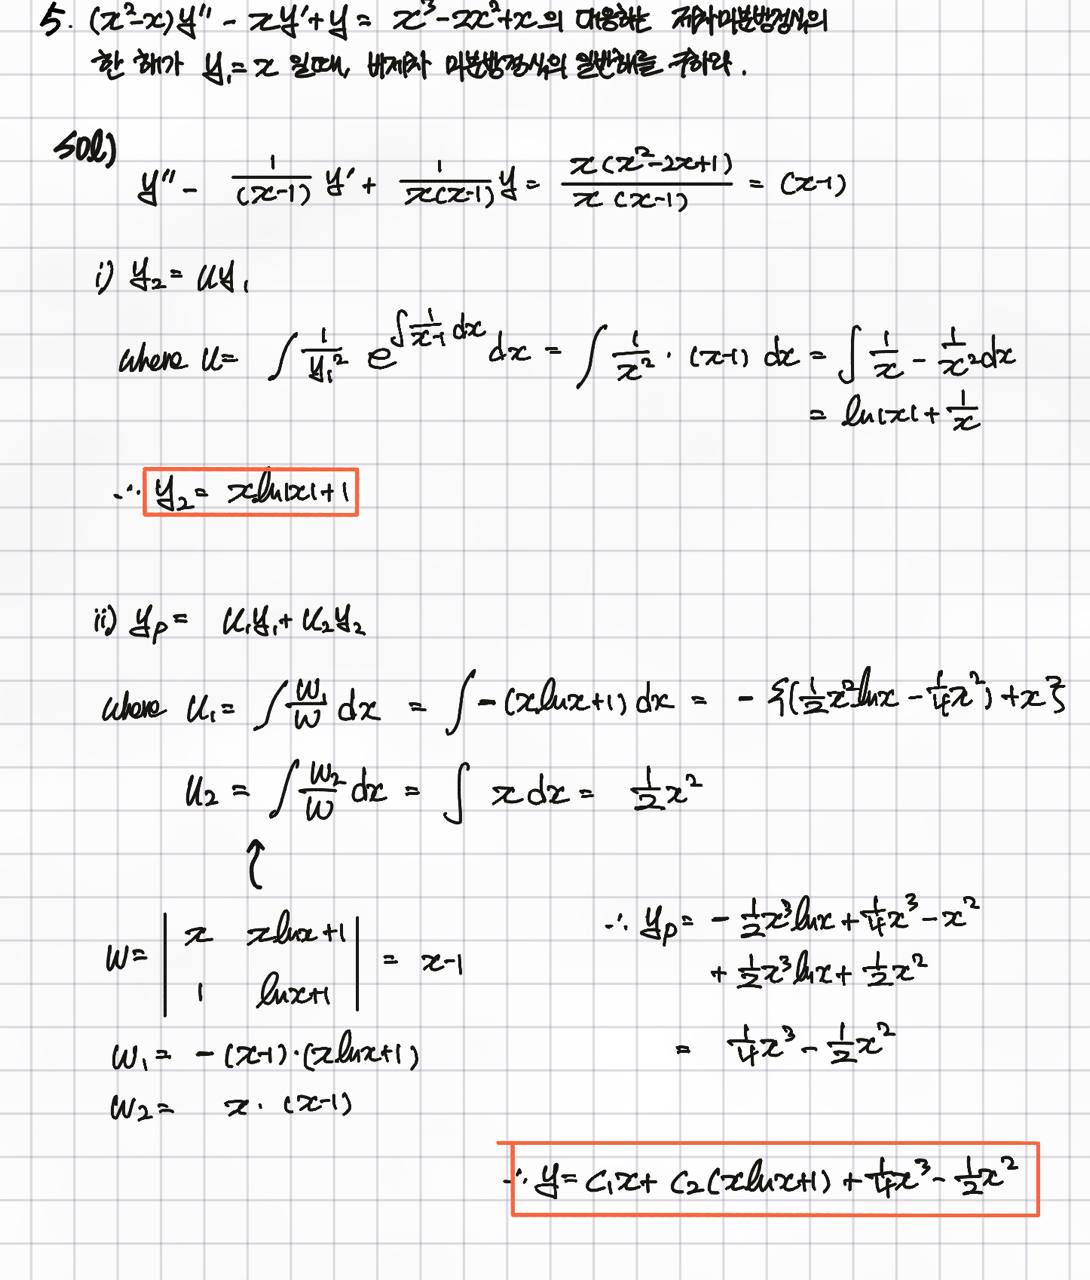 5. (x²-x)y'' - xy'+y = x³-2x²+x의 대응하는 제차미분방정식의
한 해가 y₁=x 일때, 비제차 미분방정식의 일반해를 구하라.
sol)
y'' - 1/(x-1) y' + 1/x(x-1) y = x(x²-2x+1)/x(x-1) = (x-1)
i) y₂= uy₁
where u= ∫ 1/y₁² e^∫1/(x-1) dx dx = ∫ 1/x² · (x-1) dx = ∫ 1/x - 1/x² dx
= ln|x| + 1/x
∴ y₂= xln|x|+1
ii) yp= u₁y₁+u₂y₂
where u₁= ∫ W₁/W dx = ∫ -(xlnx+1) dx = - {(1/2x²lnx - 1/4x²) + x}
u₂ = ∫ W₂/W dx = ∫ x dx = 1/2x²
W= | x xlnx+1 | = x-1
| 1 lnx+1 |
W₁= -(x-1)·(xlnx+1)
W₂= x·(x-1)
∴ yp= - 1/2x³lnx + 1/4x³ - x²
+ 1/2x³lnx + 1/2x²
= 1/4x³ - 1/2x²
∴ y= C₁x+ C₂(xlnx+1) + 1/4x³ - 1/2x²